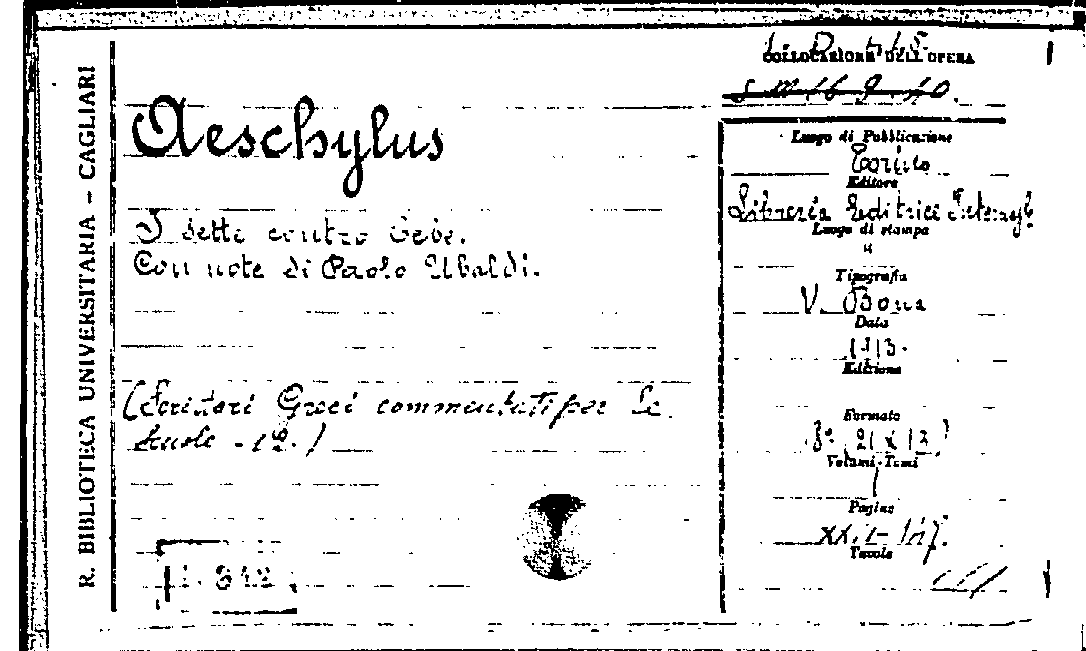 R. BIBLIOTECA UNIVERSITARIA - CAGLIARI
Aeschylus
I sette contro Tebe.
Con note di Paolo Ubaldi.
(Scrittori Greci commentati per le
Scuole - 12.)
COLLOCAZIONE DELL'OPERA
Luogo di Pubblicazione
Torino
Editore
Libreria Editrice Internaz.
Luogo di stampa
"
Tipografia
V. Bona
Data
1913.
Edizione
Formato
8° (21 x 13)
Volumi-Tomi
1
Pagine
Tavole